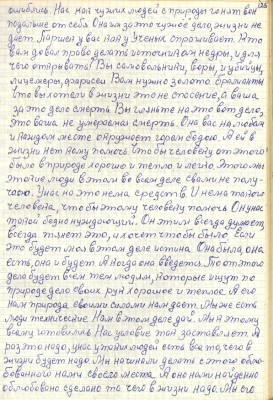 126
ошиблись. Нас как чужих людей с природы гонят вон
подальше от себя. Она им за это чужое дело, жизни не
дает. Паршек у вас как у ученых спрашивает. А кто
вам давал право делать источникам недры, и для
чего открывать? Вы самовольники, воры, и убийцы,
лицемеры, фарисеи. Вам нужно золото, бриллианты
что вы хотели в жизни это не спасение, а ваша,
за это дело смерть. Вы гляньте на это вот дело,
это ваша не умеровная смерть. Она вас на любом
и каждом месте окружает горем бедою. А ей в
жизни нет кому помочь чтобы человеку от этого
было в природе хорошо и тепло и легко. Этого мы
этакие люди в этом во всем деле своем не полу-
чаю. У нас на это нема средств. И нема такого
человека, что бы этому человеку помочь. Он у нас
такой бедно нуждающий. Он этим всегда думает,
всегда тянет это, и хочет чтобы было свое
это будет мол в этом деле истина. Она была, она
есть, она и будет. А когда она введеть. То от этого
дела будет всем тем людям, которые ищут по
природе дело своих рук хорошее и теплое. А его
нам природа своими силами нам дает. Мы же есть
люди технические. Нам в этом деле дай. Мы к этому
всему готовились. Нас условие так заставляет. А
раз это надо, у нас у таких людей есть все то, чего в
жизни будет надо. Мы начинали делать с этого облю-
бованного нами своего места. А оно нами найденно
облюбовано сделано то чего в жизни надо. Мы его